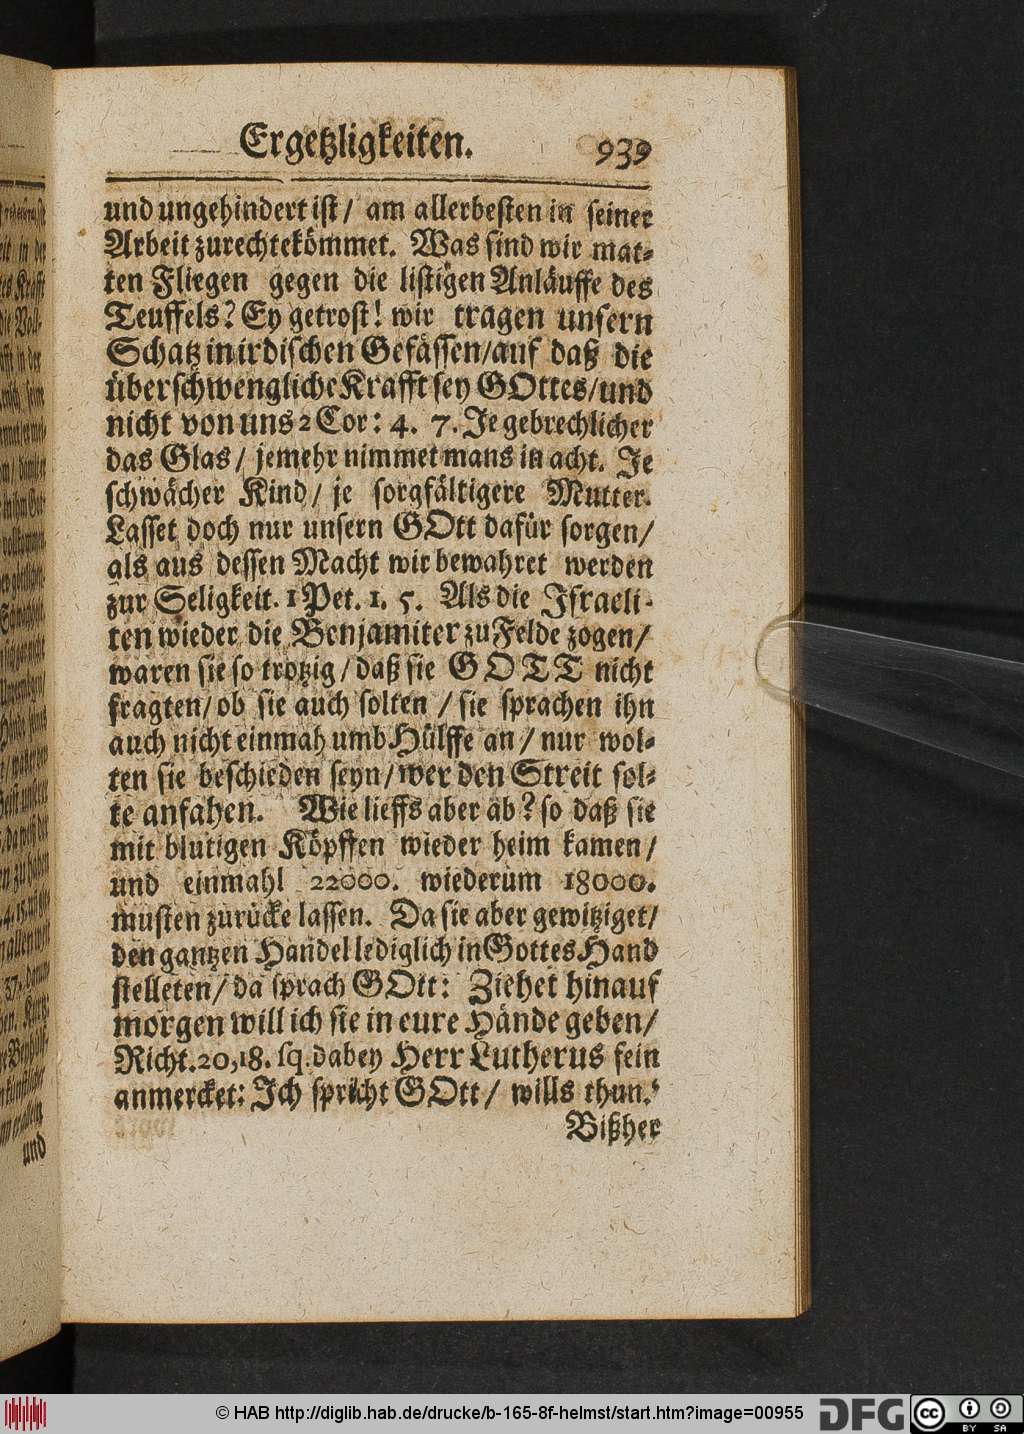 Ergetzligkeiten. 939
und ungehindert ist / am allerbesten in seiner
Arbeit zurechtekömmet. Was sind wir mat-
ten Fliegen gegen die listigen Anläuffe des
Teuffels? Ey getrost! wir tragen unsern
Schatz in irdischen Gefässen / auf daß die
überschwengliche Krafft sey GOttes / und
nicht von uns 2 Cor: 4. 7. Je gebrechlicher
das Glas / jemehr nimmet mans in acht. Je
schwächer Kind / je sorgfältigere Mutter.
Lasset doch nur unsern GOtt dafür sorgen /
als aus dessen Macht wir bewahret werden
zur Seligkeit. 1 Pet. 1. 5. Als die Israeli-
ten wieder die Benjamiter zu Felde zogen /
waren sie so trotzig / daß sie GOTT nicht
fragten / ob sie auch solten / sie sprachen ihn
auch nicht einmah umb Hülffe an / nur wol-
ten sie beschieden seyn / wer den Streit sol-
te anfahen. Wie lieffs aber ab? so daß sie
mit blutigen Köpffen wieder heim kamen /
und einmahl 22000. wiederum 18000.
musten zurücke lassen. Da sie aber gewitziget /
den gantzen Handel lediglich in Gottes Hand
stelleten / da sprach GOtt: Ziehet hinauf
morgen will ich sie in eure Hände geben /
Richt. 20, 18. sq. dabey Herr Lutherus fein
anmercket: Ich spricht GOtt / wills thun.
Bißher
und
© HAB http://diglib.hab.de/drucke/b-165-8f-helmst/start.htm?image=00955
DFG
cc
BY SA